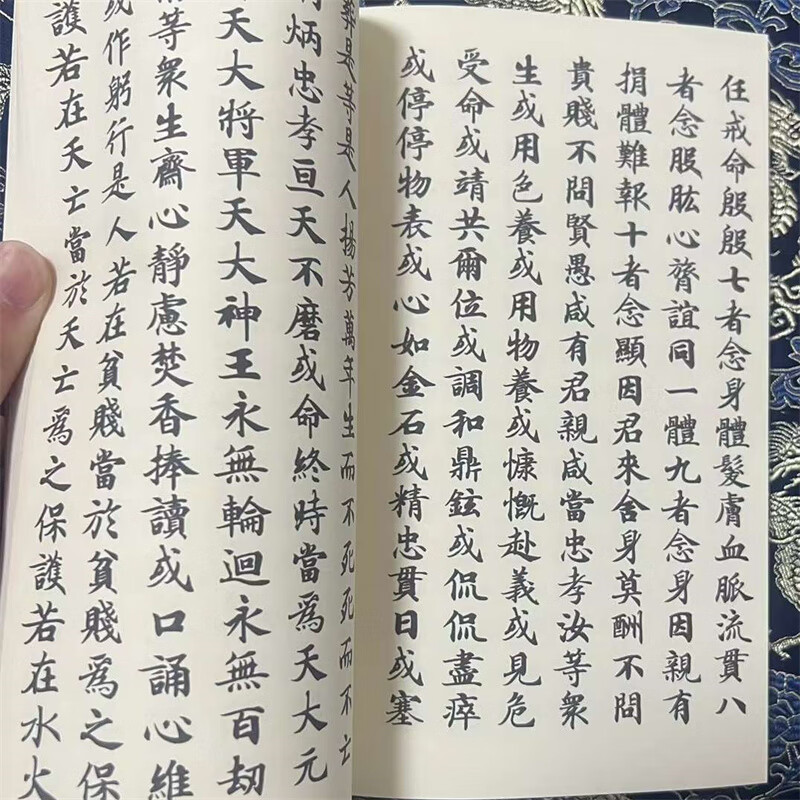 任戒命殷殷七者念身體髮膚血脈流貫八
者念股肱心膂誼同一體九者念身因親有
捐體難報十者念顯因君來舍身莫酬不問
貴賤不問賢愚咸有君親咸當忠孝汝等衆
生或用色養或用物養或慷慨赴義或見危
受命或靖共爾位或調和鼎鉉或侃侃盡瘁
或停停物表或心如金石或精忠貫日或塞
是等是人揚芳萬年生而不死死而不亡
炳忠孝亘天不磨或命終時當爲天大元
天大將軍天大神王永無輪迴永無百劫
等衆生齋心靜慮焚香捧讀或口誦心維
或作躬行是人若在貧賤當於貧賤爲之保
護若在夭亡當於夭亡爲之保護若在水火